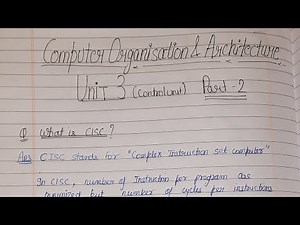 Computer Organisation & Architecture
Unit 3 (Control unit) Part-2
Q What is CISC?
Ans CISC stands for "Complex Instruction set computer"
In CISC, number of Instruction per program are
minimized but number of cycles per instructions